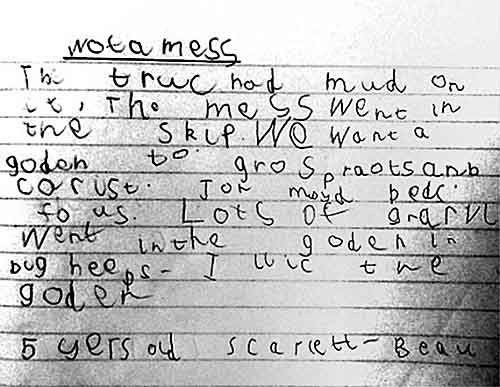 not a mess
Thi truc had mud on
it, The mess went in
the skip. We want a
goden to gro spraots anb
carust. Jon mayd beds.
fo us. Lots of gravl
went in the goden in
bug heeps- I lic the
goden
5 yers old scarlett-Beau